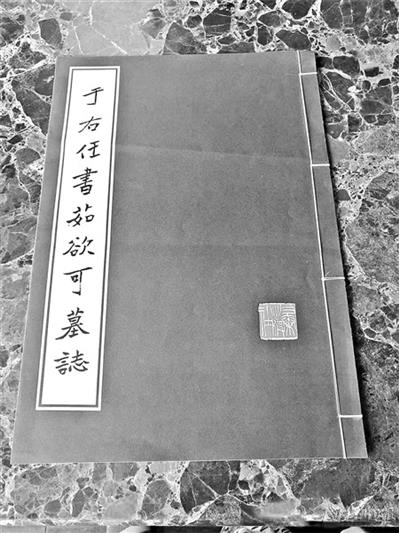 于右任書茹欲可墓誌